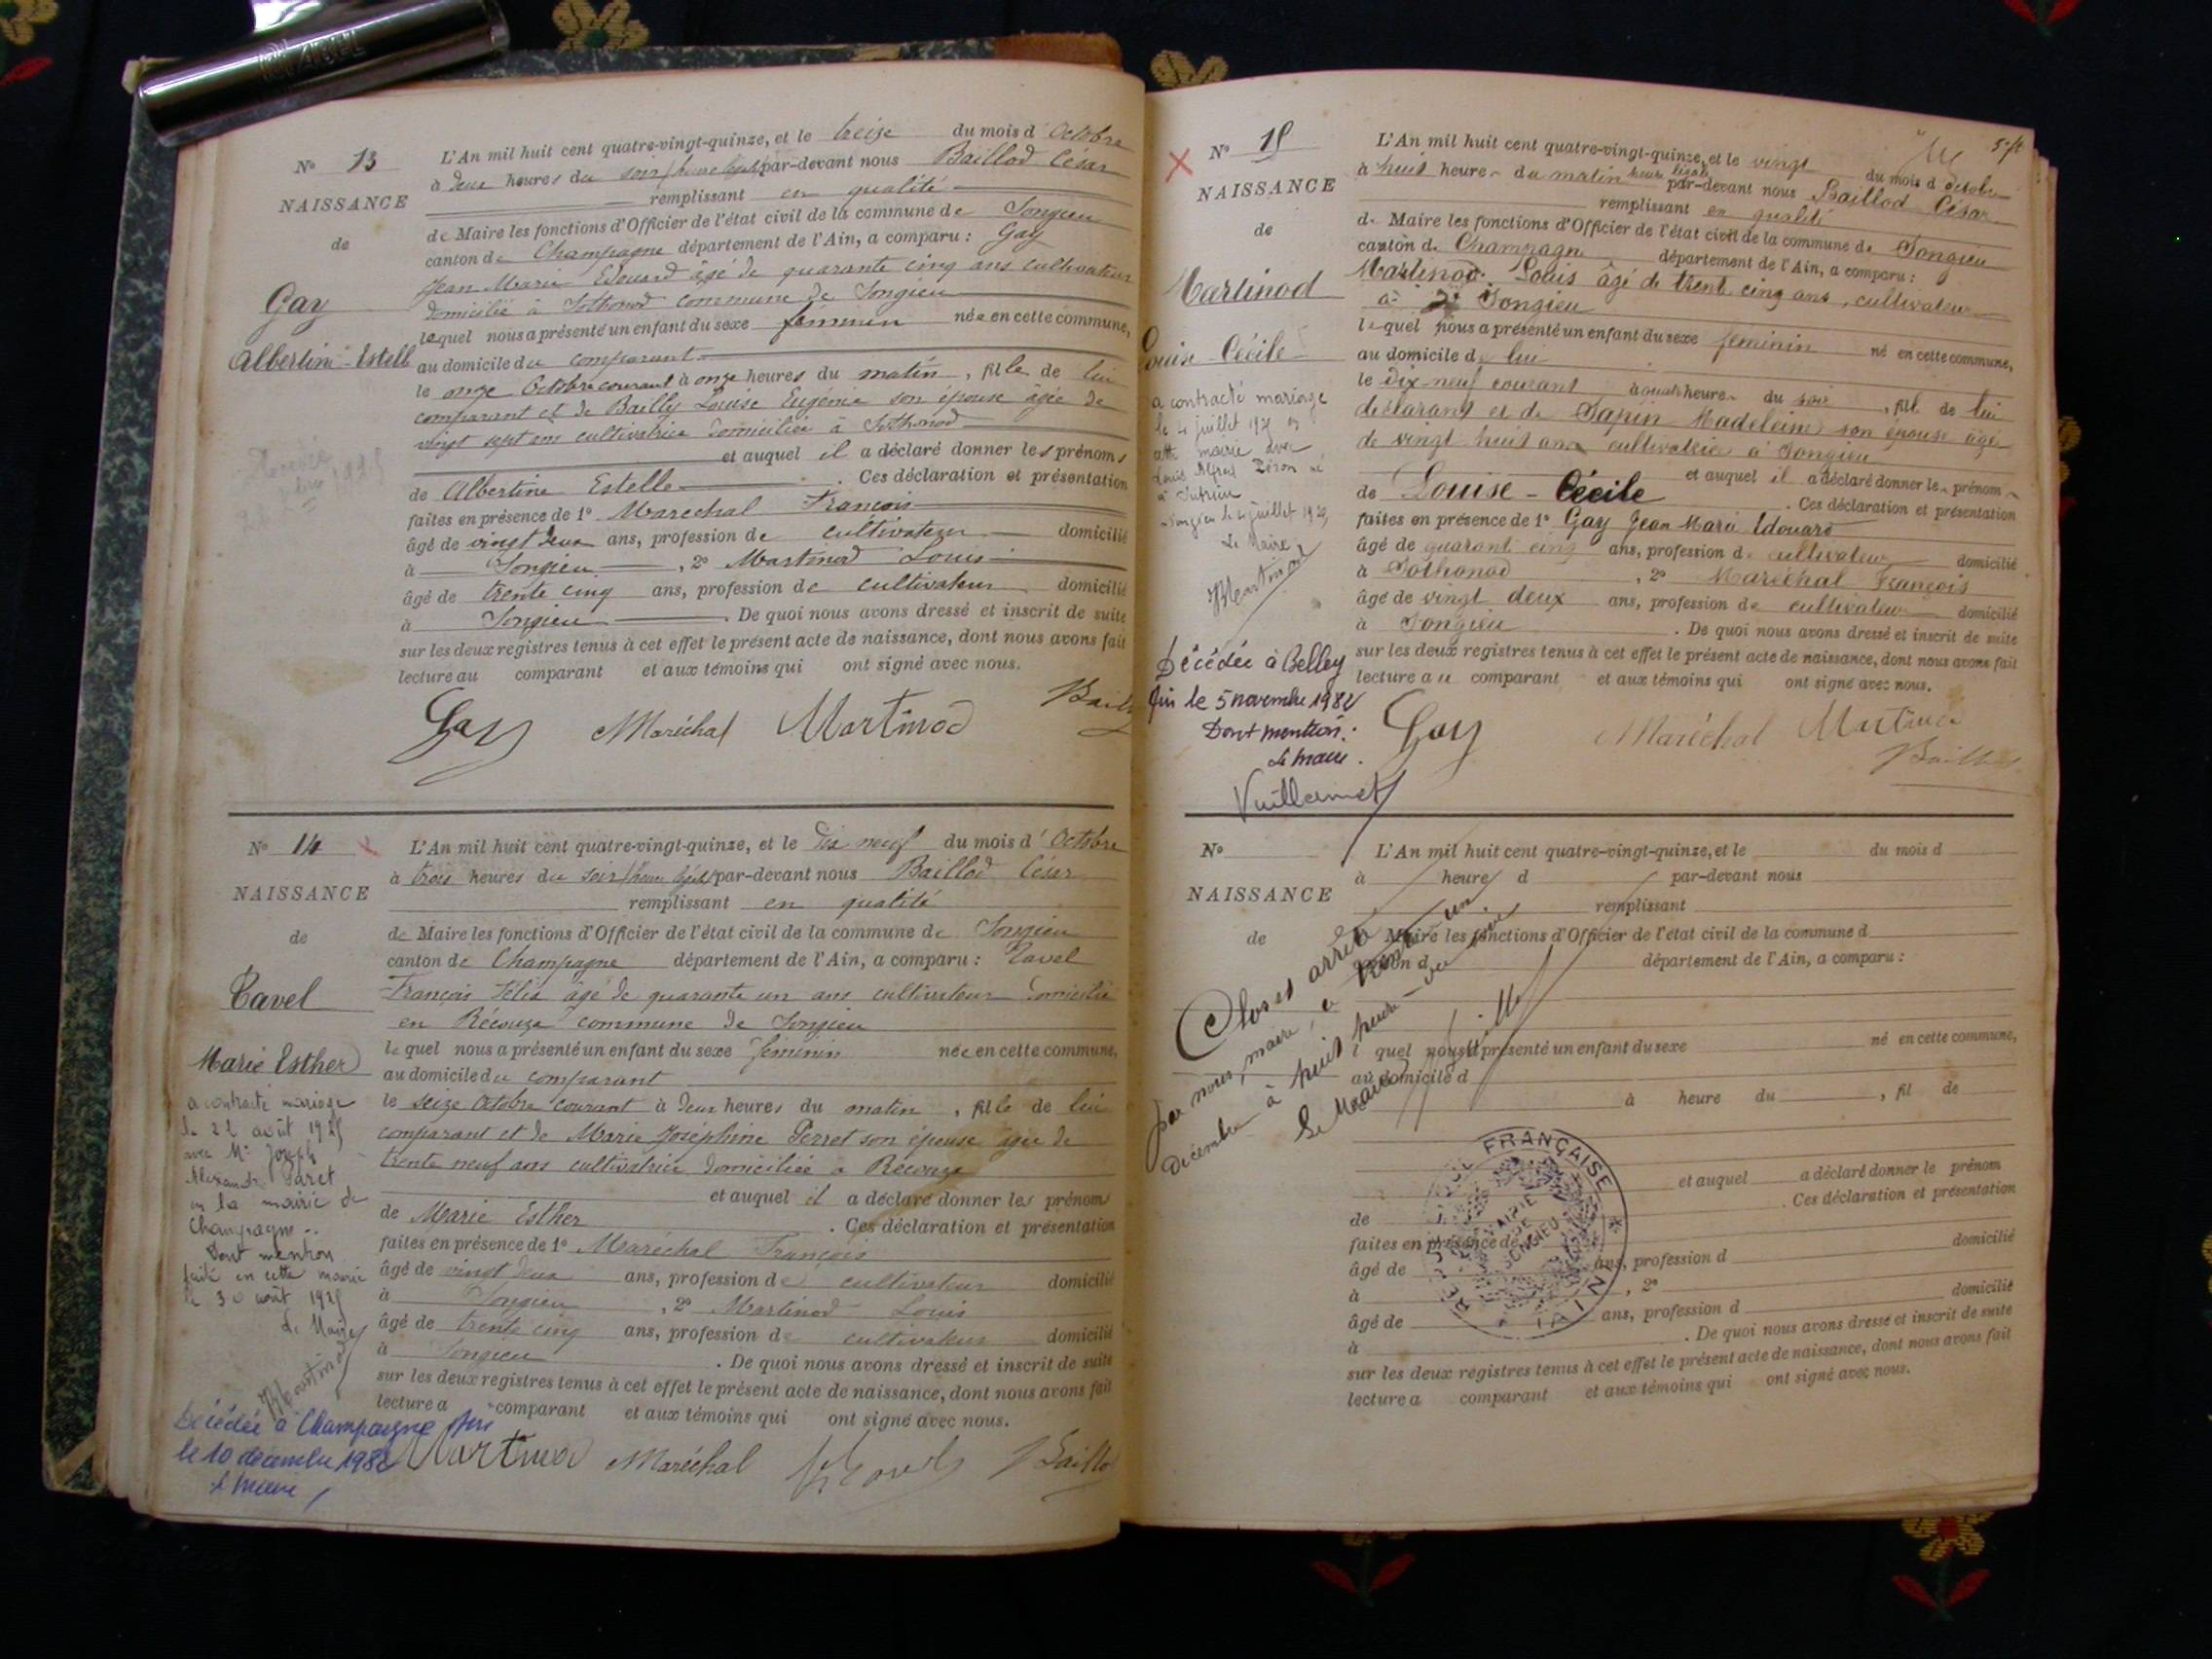 N° 13
NAISSANCE
de
Gay
Albertine-Estelle
L'An mil huit cent quatre-vingt-quinze, et le treize du mois d'Octobre
à deux heures du soir (heure légale) par-devant nous Baillod César
remplissant en qualité
de Maire les fonctions d'Officier de l'état civil de la commune de Songieu
canton de Champagne département de l'Ain, a comparu : Gay
Jean Marie Edouard âgé de quarante cinq ans cultivateur
domicilié à Sothonod commune de Songieu
lequel nous a présenté un enfant du sexe féminin née en cette commune,
au domicile du comparant
le onze Octobre courant à onze heures du matin, fille de lui
comparant et de Bailly Louise Eugénie son épouse âgée de
vingt sept ans cultivatrice domiciliée à Sothonod
et auquel il a déclaré donner les prénoms
de Albertine Estelle . Ces déclaration et présentation
faites en présence de 1° Marechal François
âgé de vingt deux ans, profession de cultivateur domicilié
à Songieu , 2° Martinod Louis
âgé de trente cinq ans, profession de cultivateur domicilié
à Songieu . De quoi nous avons dressé et inscrit de suite
sur les deux registres tenus à cet effet le présent acte de naissance, dont nous avons fait
lecture au comparant et aux témoins qui ont signé avec nous.
Gay Maréchal Martinod
N° 14
NAISSANCE
de
Tavel
Marie Esther
a contracté mariage
le 22 août 19
avec Mr Joseph
Alexandre Paret
en la mairie de
Champagne.
Dont mention
faite en cette mairie
le 30 août 19
Le Maire
Martinod
Décédée à Champagne
le 10 décembre 198
le maire
L'An mil huit cent quatre-vingt-quinze, et le dix neuf du mois d'Octobre
à trois heures du soir (heure légale) par-devant nous Baillod César
remplissant en qualité
de Maire les fonctions d'Officier de l'état civil de la commune de Songieu
canton de Champagne département de l'Ain, a comparu : Tavel
François Félix âgé de quarante un ans cultivateur domicilié
en Récouza commune de Songieu
lequel nous a présenté un enfant du sexe féminin née en cette commune,
au domicile du comparant
le seize Octobre courant à deux heures du matin, fille de lui
comparant et de Marie Joséphine Perret son épouse âgée de
trente neuf ans cultivatrice domiciliée à Récouza
et auquel il a déclaré donner les prénoms
de Marie Esther . Ces déclaration et présentation
faites en présence de 1° Maréchal François
âgé de vingt deux ans, profession de cultivateur domicilié
à Songieu , 2° Martinod Louis
âgé de trente cinq ans, profession de cultivateur domicilié
à Songieu . De quoi nous avons dressé et inscrit de suite
sur les deux registres tenus à cet effet le présent acte de naissance, dont nous avons fait
lecture a comparant et aux témoins qui ont signé avec nous.
Martinod Maréchal
N° 15
NAISSANCE
de
Martinod
Louise-Cécile
a contracté mariage
le juillet
cette mairie avec
Louis Alfred né
à
Songieu le juillet
Le Maire
Martinod
Décédée à Belley
Ain le 5 novembre 198
Dont mention.
Le maire.
Vuillermet
L'An mil huit cent quatre-vingt-quinze, et le vingt du mois d'octobre
à huit heures du matin heure légale par-devant nous Baillod César
remplissant en qualité
de Maire les fonctions d'Officier de l'état civil de la commune de Songieu
canton de Champagne département de l'Ain, a comparu :
Martinod Louis âgé de trente cinq ans, cultivateur
à Songieu
lequel nous a présenté un enfant du sexe féminin né en cette commune,
au domicile de lui
le dix-neuf courant à quatre heures du soir , fille de lui
déclarant et de Sapin Madeleine son épouse âgée
de vingt huit ans cultivatrice à Songieu
et auquel il a déclaré donner les prénoms
de Louise-Cécile . Ces déclaration et présentation
faites en présence de 1° Gay Jean Marie Edouard
âgé de quarante cinq ans, profession de cultivateur domicilié
à Sothonod , 2° Maréchal François
âgé de vingt deux ans, profession de cultivateur domicilié
à Songieu . De quoi nous avons dressé et inscrit de suite
sur les deux registres tenus à cet effet le présent acte de naissance, dont nous avons fait
lecture au comparant et aux témoins qui ont signé avec nous.
Gay Maréchal Martinod
N°
NAISSANCE
de
L'An mil huit cent quatre-vingt-quinze, et le du mois d
à heure d par-devant nous
remplissant
Maire les fonctions d'Officier de l'état civil de la commune d
canton d département de l'Ain, a comparu :
l quel nous a présenté un enfant du sexe né en cette commune,
au domicile d
à heure du , fil de
et auquel a déclaré donner le prénom
de . Ces déclaration et présentation
faites en présence de
âgé de ans, profession d domicilié
à , 2°
âgé de ans, profession d domicilié
à . De quoi nous avons dressé et inscrit de suite
sur les deux registres tenus à cet effet le présent acte de naissance, dont nous avons fait
lecture a comparant et aux témoins qui ont signé avec nous.
Clos et arrêté
par nous, maire, le trente un
décembre à huit heures du
Le Maire
RÉPUBLIQUE FRANÇAISE
MAIRIE DE SONGIEU
AIN